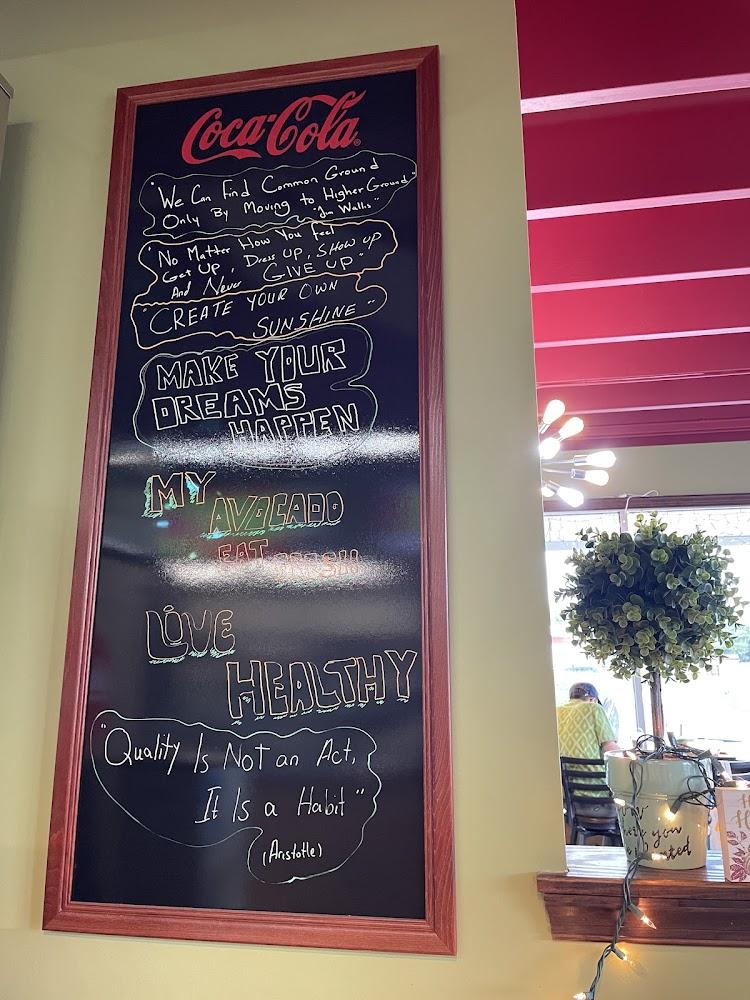 Coca-Cola
"We Can Find Common Ground
Only By Moving to Higher Ground"
"Jim Wallis"
"No Matter How You Feel
Get Up, Dress Up, Show up
And Never GIVE UP"
"CREATE YOUR OWN
SUNSHINE"
MAKE YOUR
DREAMS
HAPPEN
MY
AVOCADO
EAT FRESH
LIVE
HEALTHY
"Quality Is Not an Act,
It Is a Habit"
(Aristotle)
you